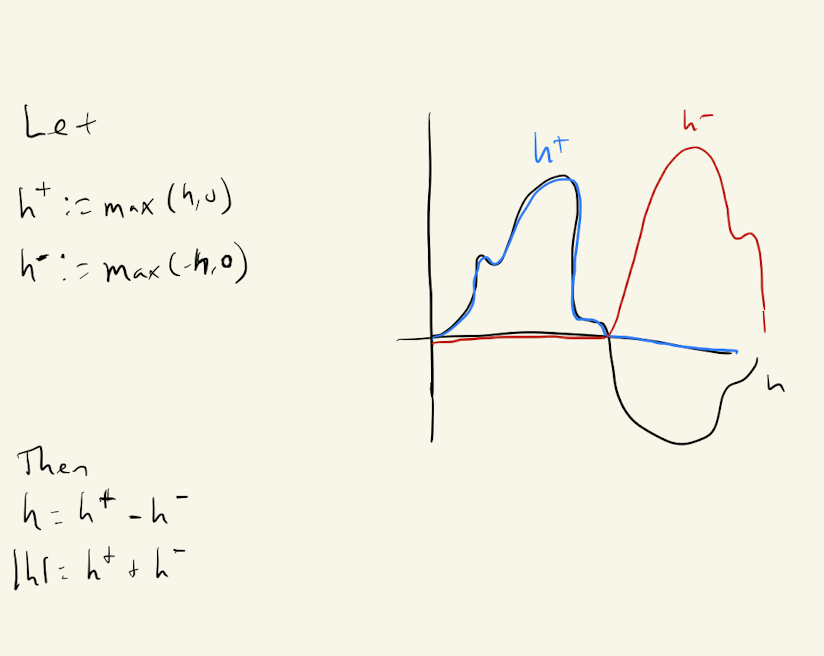 Let
h⁺ := max(h,0)
h⁻ := max(-h,0)
h⁺
h⁻
h
Then
h = h⁺ - h⁻
|h| = h⁺ + h⁻